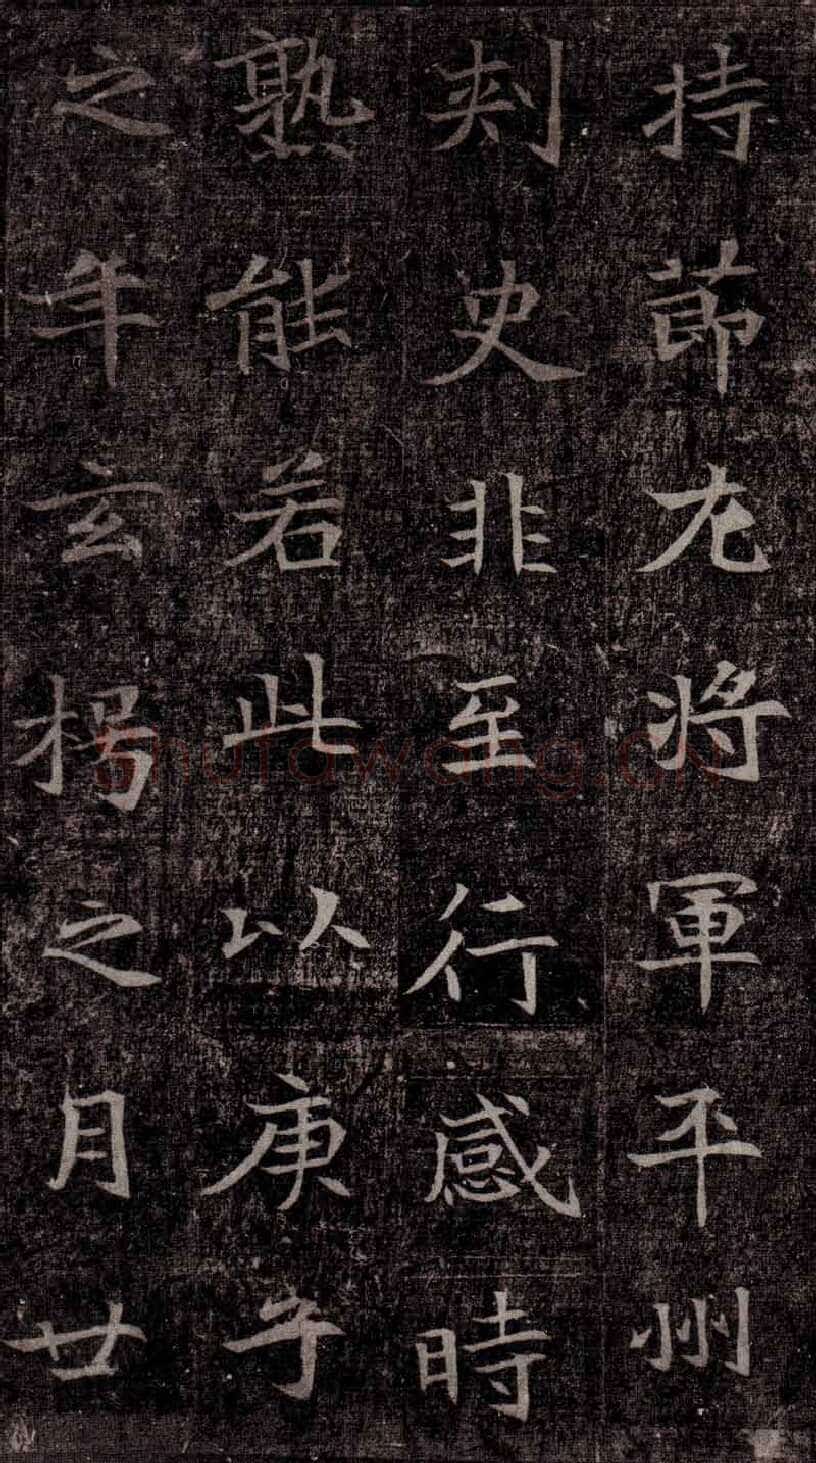 持節龙將軍平州
刾史非至行感時
熟能若此以庚午
之年玄枵之月廿
shufawang.CN